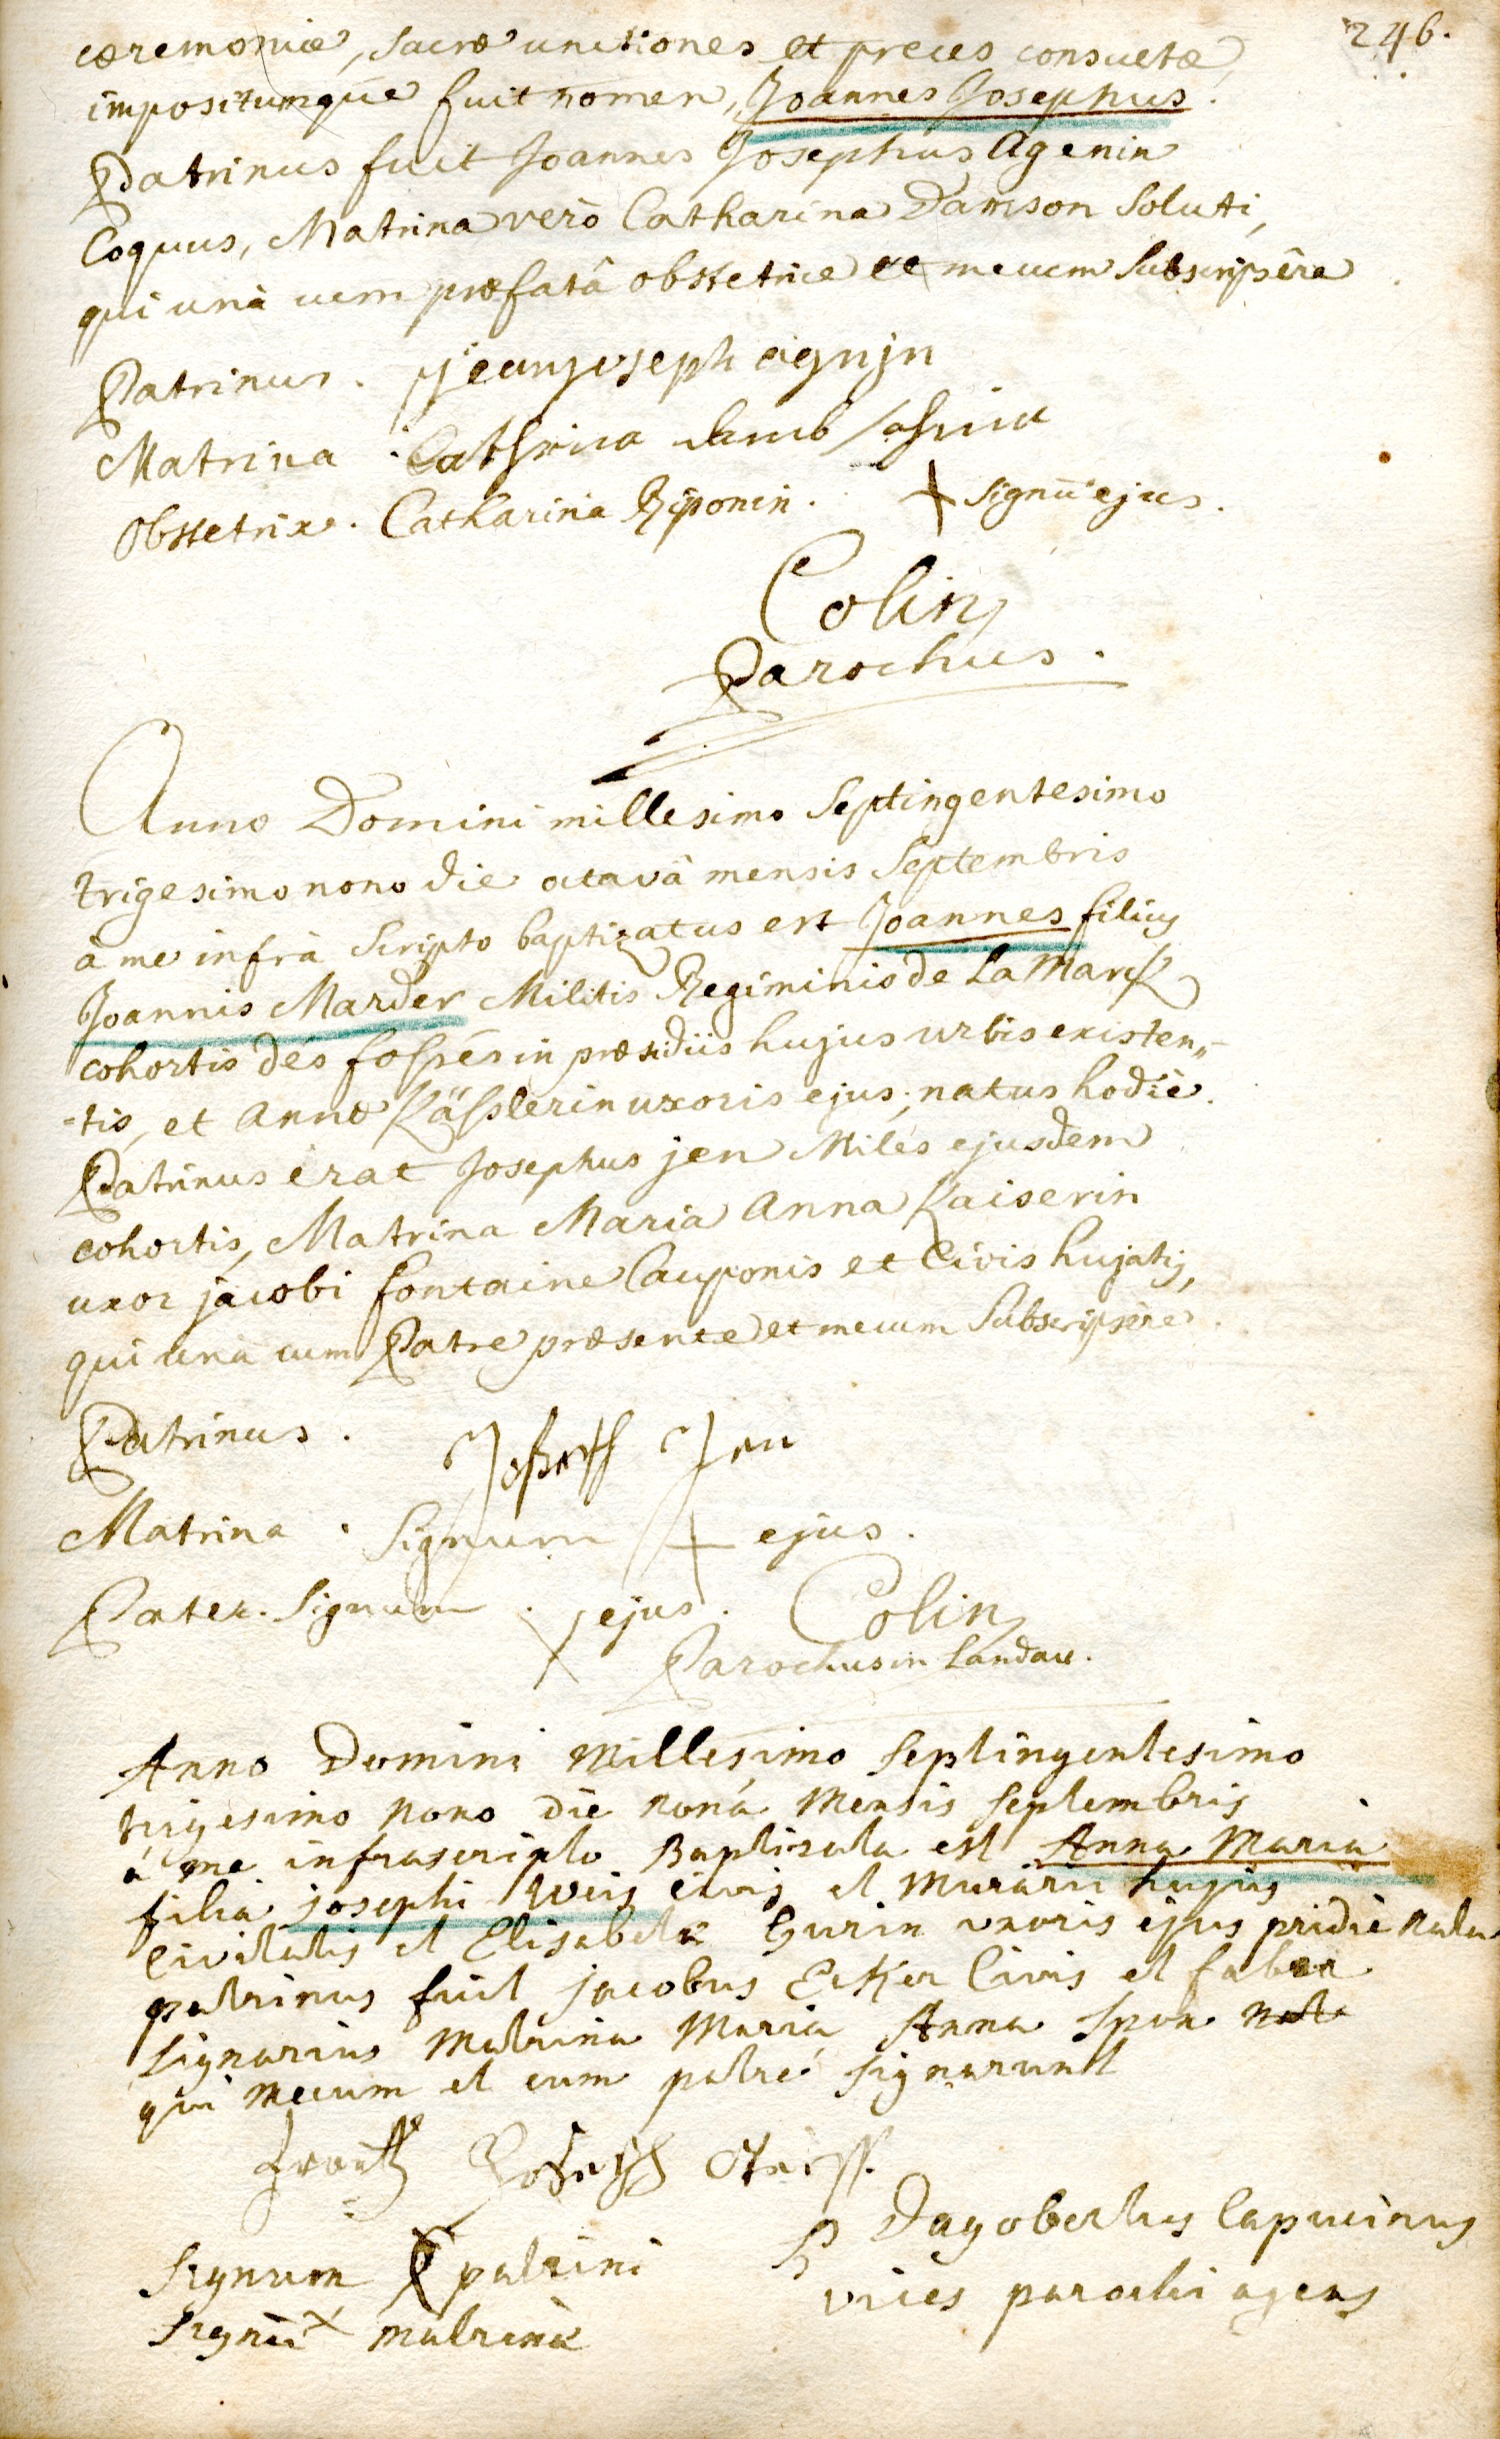 246.
cæremoniæ, sacræ unctiones et preces consuetæ,
impositumque fuit nomen, Joannes Josephus.
Patrinus fuit Joannes Josephus Agenin
Coquus, Matrina verò Catharina Damson Soluti,
qui unà cum præfatâ obstetrice et mecum Subscripsêre
Patrinus. jeanjoseph agnjn
Matrina. Cathrina
Obstetrix. Catharina Riponin. + signũ ejus.
Colin
Parochus.
Anno Domini millesimo Septingentesimo
trigesimo nono die octavâ mensis Septembris
à me infrà Scripto baptizatus est Joannes filius
Joannis Marder Militis Regiminis de La Marck
cohortis des fossés in præsidiis hujus urbis existen„
-tis, et Annæ Käßlerin uxoris ejus, natus hodiè.
Patrinus erat Josephus jen Miles ejusdem
cohortis, Matrina Maria Anna Kaiserin
uxor jacobi fontaine Cauponis et Civis hujatis,
qui unà cum Patre præsente et mecum Subscripsêre.
Patrinus. Joseph Jen
Matrina. Signum + ejus.
Pater. Signum x ejus. Colin
Parochus in Landau.
Anno Domini Millesimo Septingentesimo
trigesimo nono die nonâ Mensis Septembris
à me infrascripto Baptisata est Anna Maria
filia josephi Weis civis et Murarii hujus
Civitatis et Elisabetæ uxoris ejus pridiè nata
patrinus fuit jacobus Ecker Civis et faber
lignarius Matrina Maria Anna
qui mecum et cum patre signarunt
Frantz Joseph
P Dagobertus Capucinus
Signum x patrini
vices parochi agens
Signũ x matrinæ